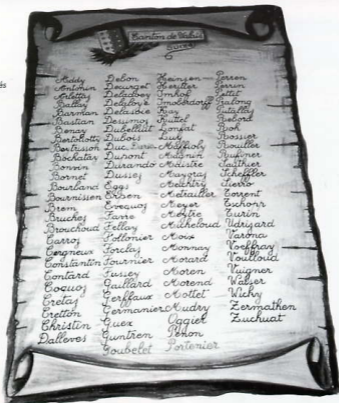 Canton de Valais
Addy
Antonin
Ballay
Barman
Bastian
Benay
Bertolotti
Bertrisson
Bochatay
Bonvin
Bornet
Bourland
Bournissen
Brem
Bruchez
Brouchoud
Carroz
Cergneux
Constantin
Contard
Coquoz
Cretaz
Cretton
Christin
Dallèves
Debon
Decurget
Deladoey
Delaloye
Delasoie
Desumoz
Dubelluit
Dubois
Duc
Dupont
Durando
Dussez
Eggs
Ersen
Evequoz
Favre
Fellay
Follonier
Forclaz
Fournier
Fusiey
Gaillard
Gerffaux
Germanier
Guex
Guntren
Goubelet
Heinsen
Heritier
Imhof
Imoberdorff
Kuttel
Lonfat
Luy
Maffioly
Magnin
Maistre
Mayoraz
Melchtry
Metrailler
Meyer
Meytre
Micheloud
Moix
Monnay
Morard
Moren
Morend
Mottet
Mudry
Oggier
Penon
Portenier
Perren
Perrin
Pettet
Pralong
Putallaz
Rebord
Roh
Rossier
Rouiller
Rudner
Sauthier
Scheffler
Sierro
Torrent
Tschopp
Turin
Udrizard
Varona
Voeffray
Vouilloud
Vuigner
Walser
Wichy
Zermathen
Zuchuat